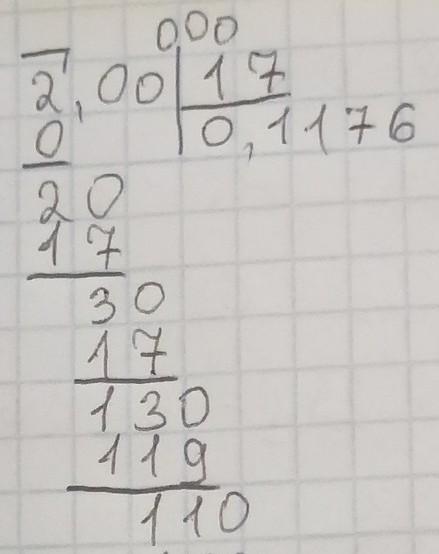 000
2,00 17
0 0,1176
20
17
30
17
130
119
110